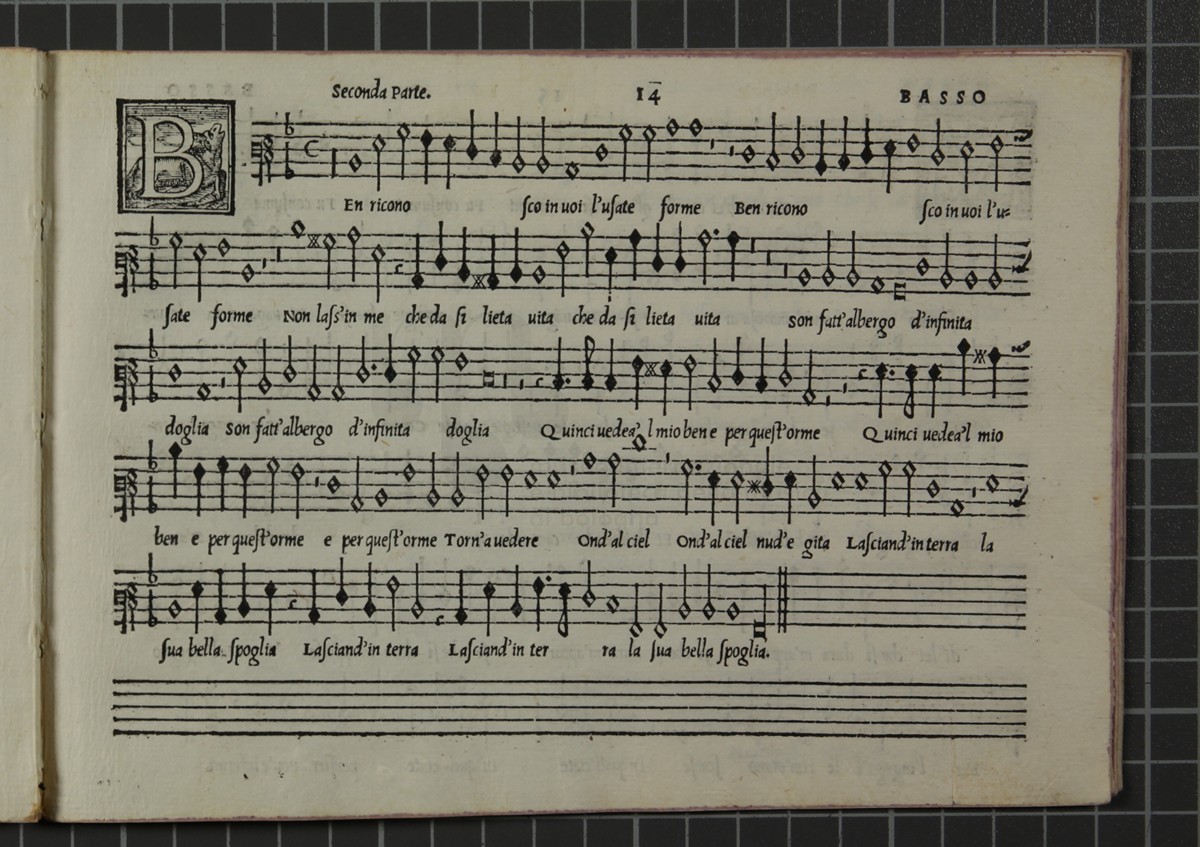 Seconda Parte. 14 BASSO
BEn ricono ſco in uoi l'uſate forme Ben ricono ſco in uoi l'u=
ſate forme Non laſs'in me che da ſi lieta uita che da ſi lieta uita son fatt'albergo d'infinita
doglia son fatt'albergo d'infinita doglia Quinci uedea'l mio ben e per queſt'orme Quinci uedea'l mio
ben e per queſt'orme e per queſt'orme Torn'a uedere Ond'al ciel Ond'al ciel nud'e gita Laſciand'in terra la
ſua bella ſpoglia Laſciand'in terra Laſciand'in ter ra la ſua bella ſpoglia.